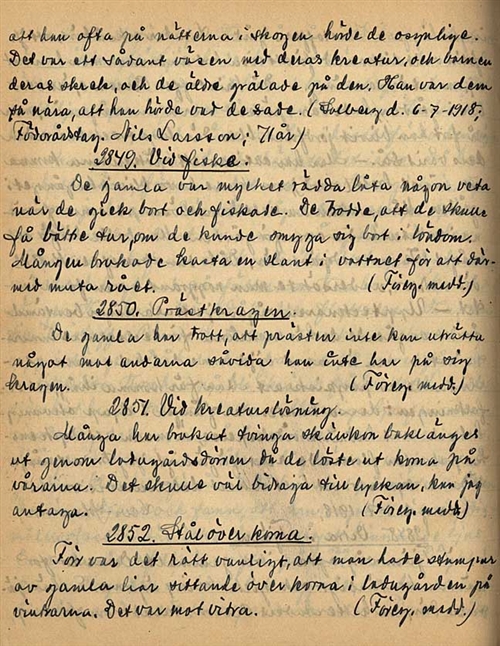 att han ofta på nätterna i skogen hörde de osynlige.
Det var ett sådant väsen med deras kreatur, och barnen
deras skrek, och de äldre grälade på den. Han var dem
så nära, att han hörde vad de sade. (Solberg d. 6-7-1918;
Födorådstag. Nils Larsson; 71 år)
2849. Vid fiske.
De gamla var mycket rädda låta någon veta
när de gick bort och fiskade. De trodde, att de skulle
få bättre tur, om de kunde smyga sig bort i löndom.
Mången brukade kasta en slant i vattnet för att där-
med muta rået. (Föreg. medd.)
2850. Prästkragen.
De gamla har trott, att prästen inte kan uträtta
något mot andarna såvida han inte har på sig
kragen. (Föreg. medd.)
2851. Vid kreaturslösning.
Många har brukat tvinga skällkon baklänges
ut genom ladugårdsdörren då de löste ut korna på
vårarna. Det skulle väl bidraga till lyckan, kan jag
antaga. (Föreg. medd.)
2852. Stål över korna.
Förr var det rätt vanligt, att man hade stumpar
av gamla liar sittande över korna i ladugården på
vintrarna. Det var mot vitra. (Föreg. medd.)